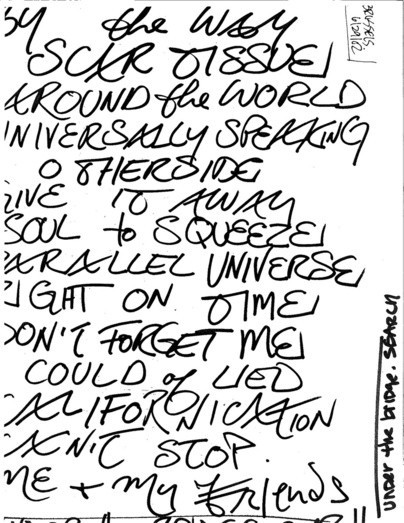 BY the WAY
SCAR TISSUE
AROUND the WORLD
NIVERSALLY SPEAKING
OTHERSIDE
GIVE IT AWAY
SOUL to SQUEEZE
PARALLEL UNIVERSE
RIGHT ON TIME
DON'T FORGET ME
COULD of LIED
CALIFORNICATION
CAN'T STOP.
ME + My Friends
under the bridge. SEARCH